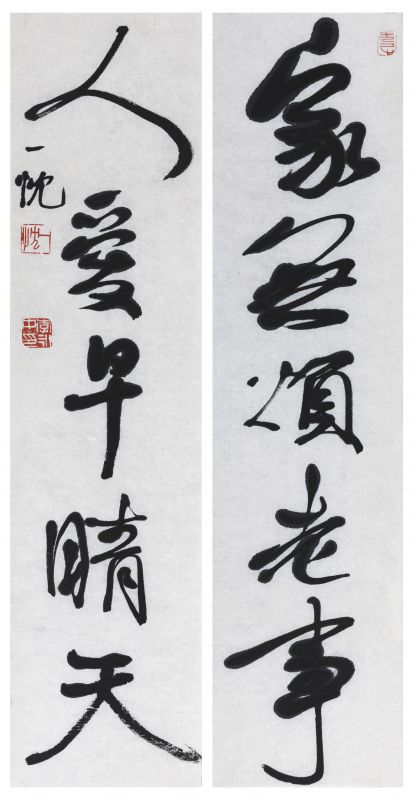 家無煩老事
人愛早晴天
一忱